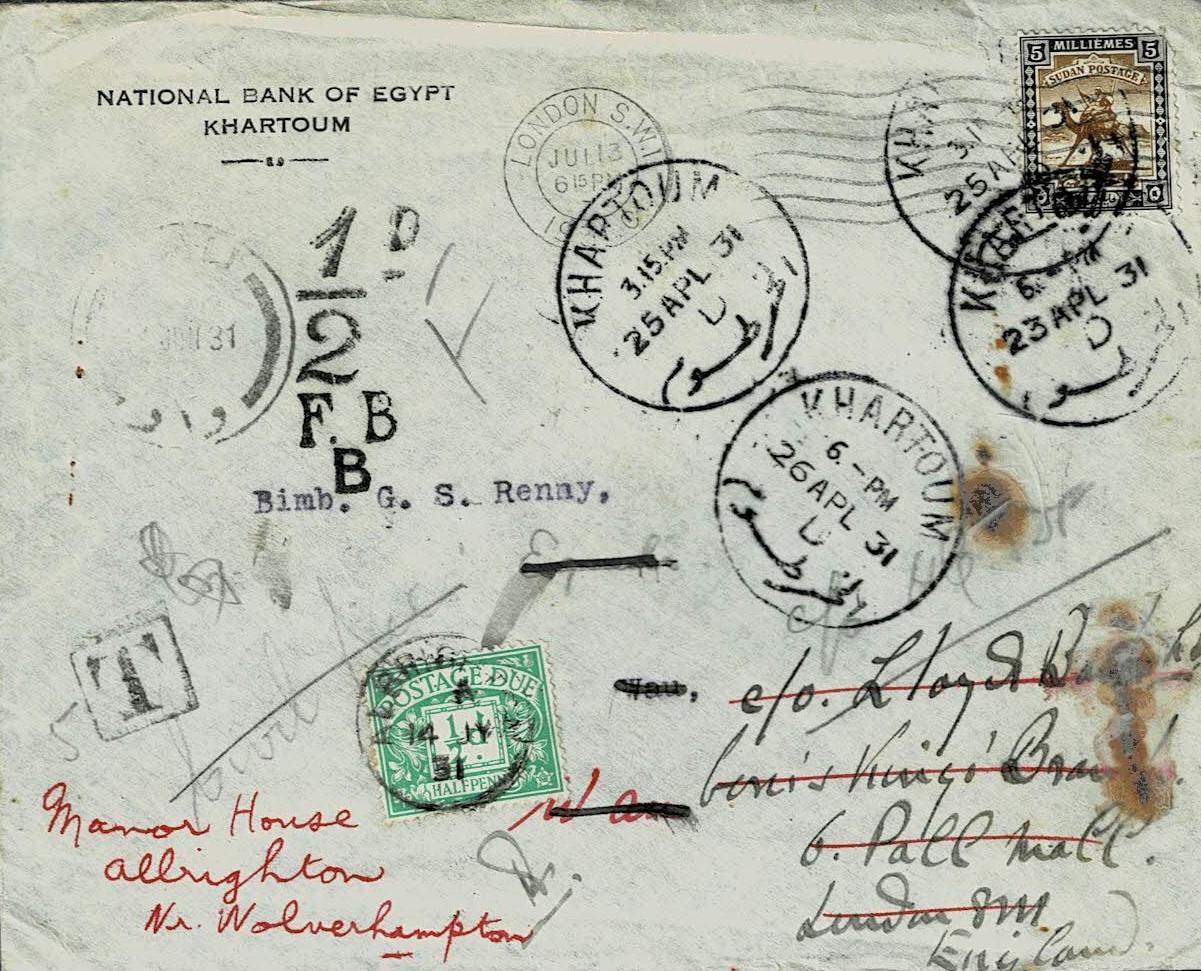 NATIONAL BANK OF EGYPT
KHARTOUM
5 MILLIÈMES 5
SUDAN POSTAGE
LONDON S.W.1
JUL 13
6 15 PM
KHARTOUM
3.15.PM
25 APL 31
خرطوم
KHARTOUM
25 APL 31
KHARTOUM
23 APL 31
KHARTOUM
6.-PM
26 APL 31
خرطوم
31
واو
1 D
2
F. B
B
Bimb. G. S. Renny,
T
POSTAGE DUE
1/2 D.
HALFPENNY
A
14 JY
31
Wau,
c/o. Lloyd
Wau
6. Pall Mall.
London SW1
England.
Manor House
Albrighton
Nr. Wolverhampton